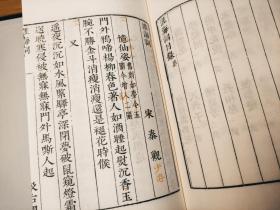 淮海詞
宋 秦觀
憶仙姿
門外鴉啼楊柳春色著人如酒睡起熨沉香玉
腕不勝金斗消瘦消瘦還是褪花時候
又
遙夜沉沉如水風緊驛亭深閉夢破鼠窺燈霜
送曉寒侵被無寐無寐門外馬嘶人起